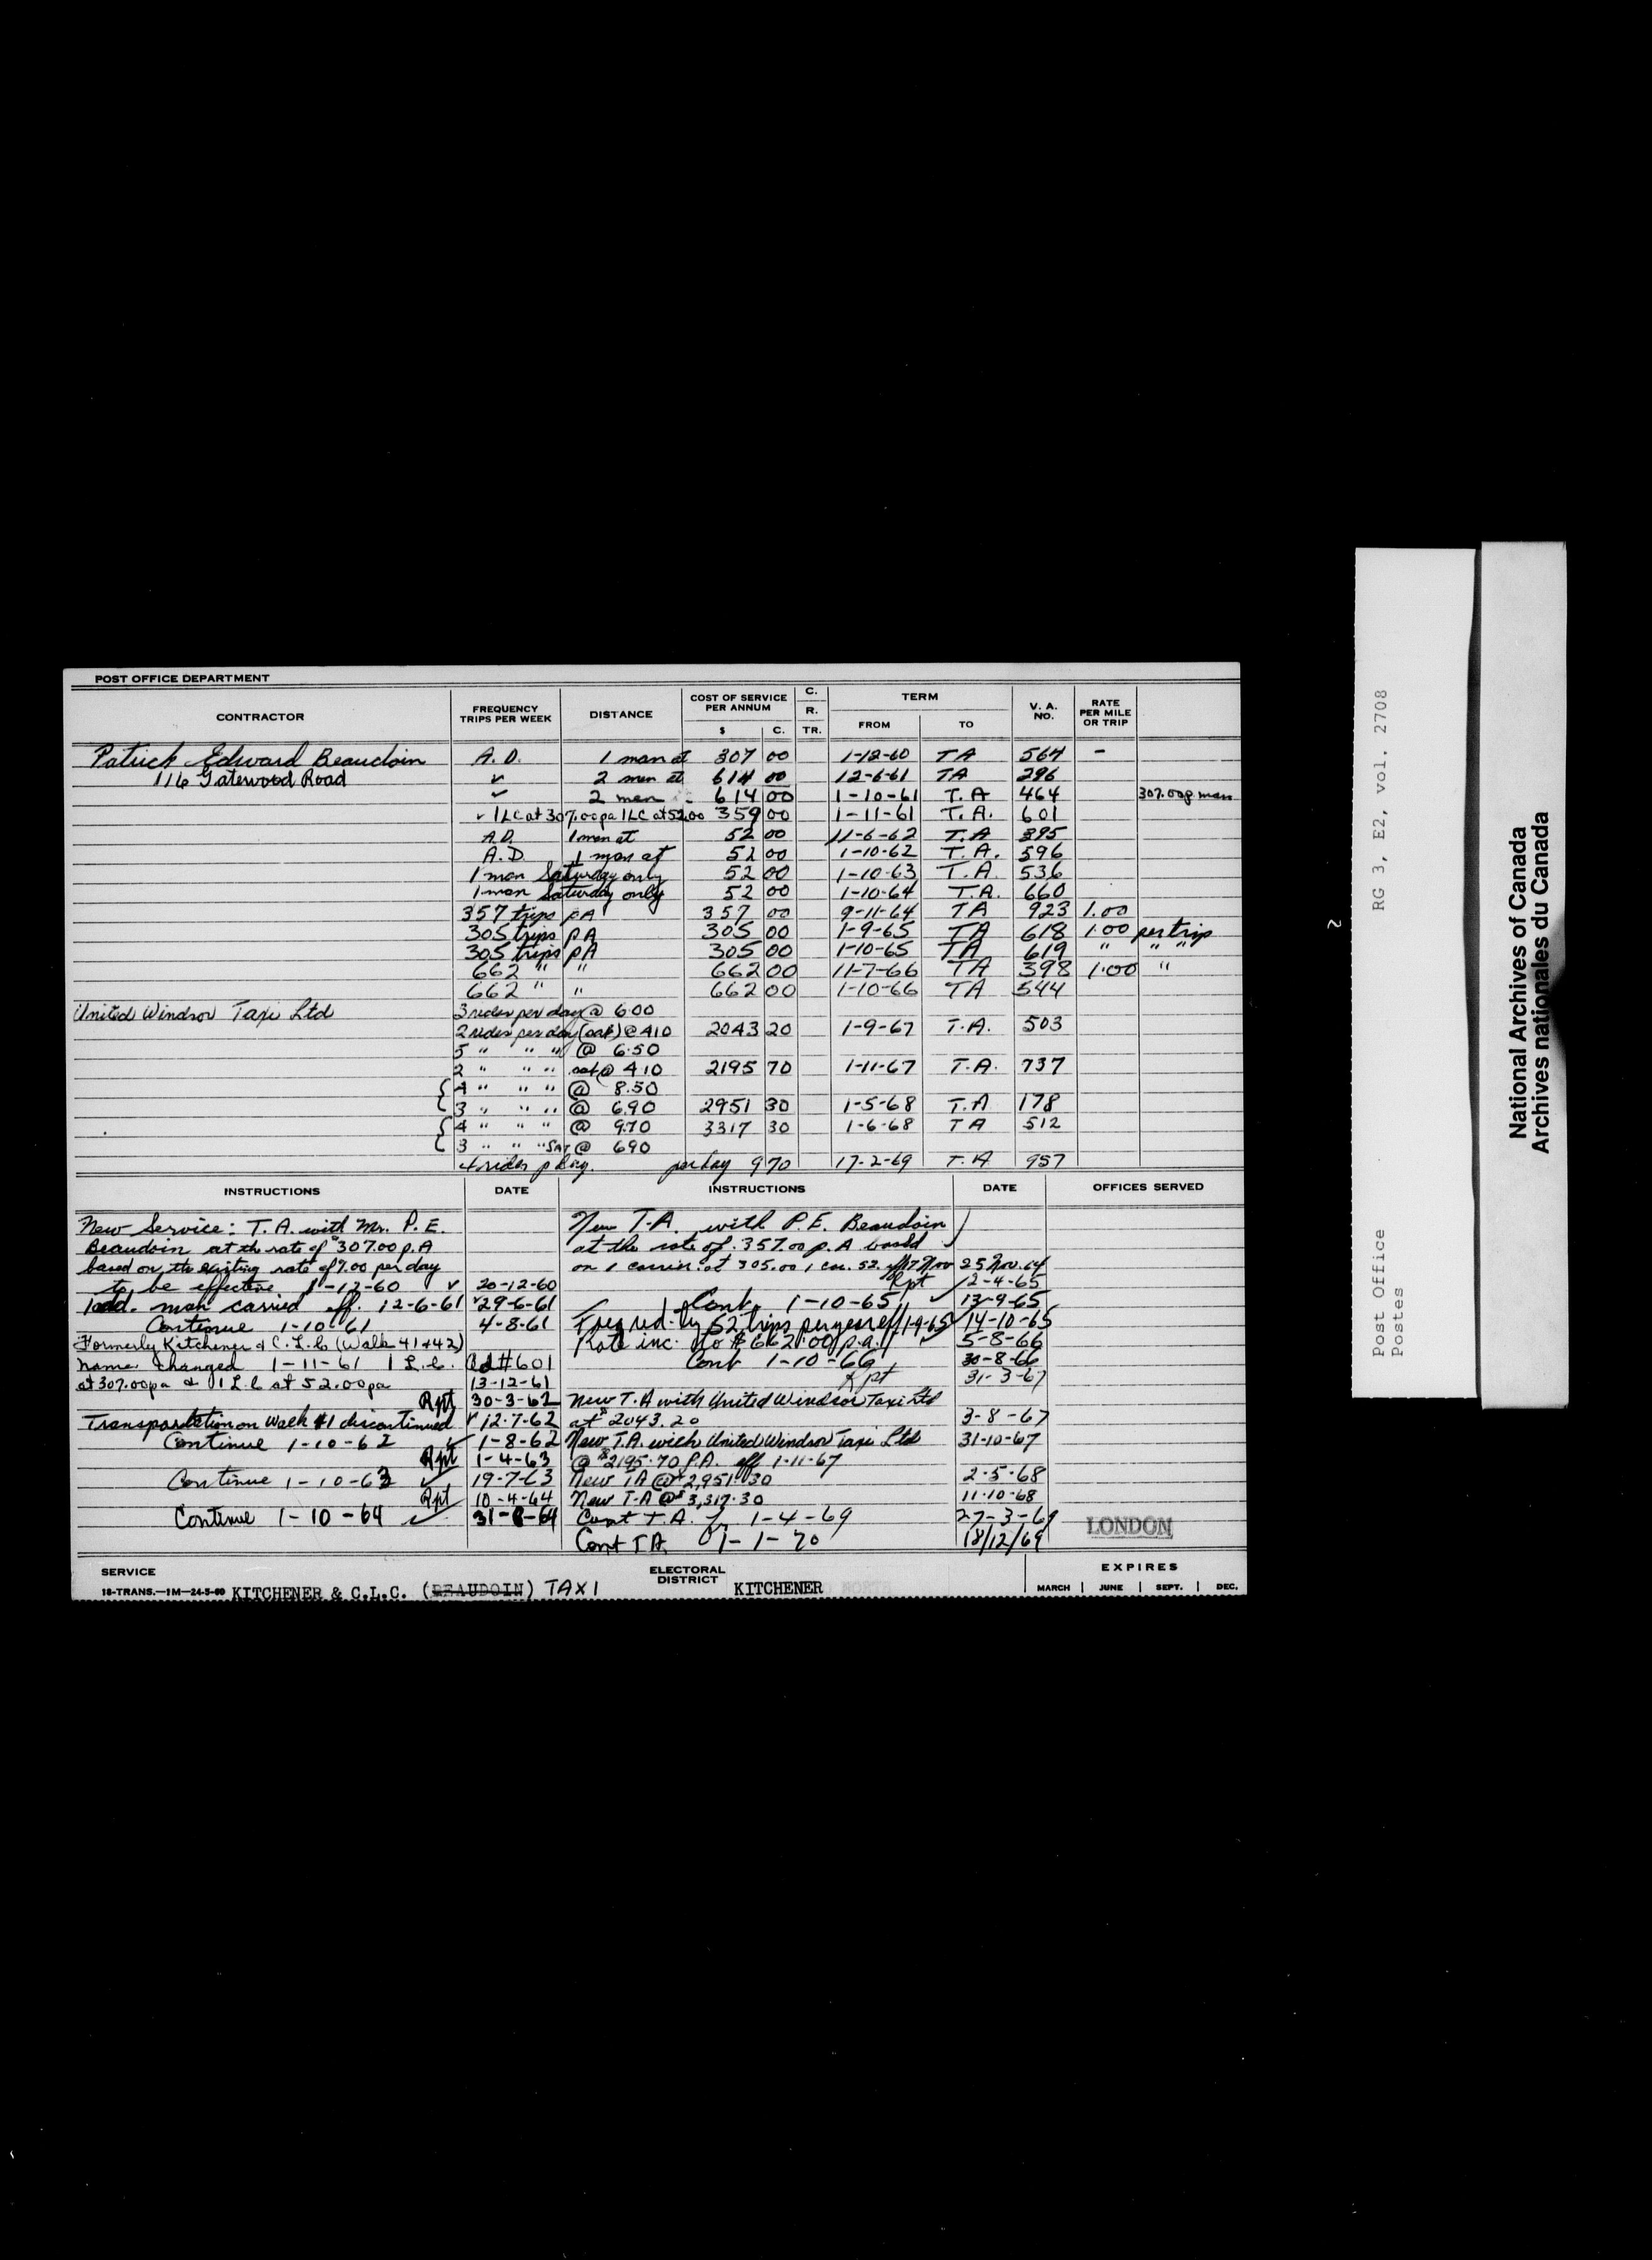 POST OFFICE DEPARTMENT
CONTRACTOR FREQUENCY TRIPS PER WEEK DISTANCE COST OF SERVICE PER ANNUM $ C. C. R. TR. TERM FROM TO V. A. NO. RATE PER MILE OR TRIP
Patrick Edward Beaudoin A.D. 1 man at 307 00 1-12-60 TA 564 -
116 Gatewood Road ✓ 2 men at 614 00 12-6-61 TA 296
✓ 2 men 614 00 1-10-61 T.A 464 307.00 p. man
✓ 1 LC at 307.00pa 1 LC at 52.00 359 00 1-11-61 T.A. 601
A.D. 1 man at 52 00 11-6-62 T.A 395
A.D. 1 man at 52 00 1-10-62 T.A. 596
1 man Saturday only 52 00 1-10-63 T.A. 536
1 man Saturday only 52 00 1-10-64 T.A. 660
357 trips pA 357 00 9-11-64 TA 923 1.00
305 trips pA 305 00 1-9-65 TA 618 1.00 per trip
305 trips pA 305 00 1-10-65 TA 619 " " "
662 " " 662 00 11-7-66 TA 398 1.00 "
662 " " 662 00 1-10-66 TA 544
United Windsor Taxi Ltd 3 rides per day @ 6.00
2 rides per day (sat) @ 4.10 2043 20 1-9-67 T.A. 503
5 " " " @ 6.50
2 " " " sat @ 4.10 2195 70 1-11-67 T.A. 737
4 " " " @ 8.50
3 " " " @ 6.90 2951 30 1-5-68 T.A 178
4 " " " @ 9.70 3317 30 1-6-68 TA 512
3 " " " SAT @ 6.90
4 rides p day. per day 9 70 17-2-69 T.A 957
INSTRUCTIONS DATE INSTRUCTIONS DATE OFFICES SERVED
New Service: T.A. with Mr. P.E. New T.A. with P.E. Beaudoin
Beaudoin at the rate of $307.00 p.A at the rate of 357.00 p.A based
based on the existing rate of 7.00 per day on 1 carrier at 305.00 1 car. 52. eff 17 Nov 25 Nov. 64
to be effective 1-12-60 ✓ 20-12-60 Rpt 2-4-65
1 add. man carried eff. 12-6-61 ✓ 29-6-61 Cont. 1-10-65 ✓ 13-9-65
Continue 1-10-61 4-8-61 Freq red. by 52 trips per year eff 1-9-65 ✓ 14-10-65
Formerly Kitchener & C.L.C (Walk 41+42) Rate inc. to $662.00 p.a. ✓ 5-8-66
name changed 1-11-61 1 L.C. Ad #601 Cont 1-10-66 30-8-66
at 307.00pa & 1 L.C at 52.00pa 13-12-61 Rpt 31-3-67
Rpt 30-3-62 New T.A with United Windsor Taxi Ltd
Transportation on Walk #1 discontinued ✓ 12-7-62 at $2043.20 3-8-67
Continue 1-10-62 ✓ 1-8-62 New T.A. with United Windsor Taxi Ltd 31-10-67
Rpt 1-4-63 @ $2195.70 P.A. eff 1-11-67
Continue 1-10-63 ✓ 19-7-63 New TA @ $2,951.30 2-5-68
Rpt 10-4-64 New T.A @ $3,317.30 11-10-68
Continue 1-10-64 ✓ 31-8-64 Cont T.A. 1-4-69 27-3-69 LONDON
Cont T.A. 1-1-70 18/12/69
SERVICE ELECTORAL DISTRICT EXPIRES
18-TRANS.—1M—24-5-60 KITCHENER & C.L.C. (BEAUDOIN) TAXI KITCHENER NORTH MARCH JUNE SEPT. DEC.
2
Post Office RG 3, E2, vol. 2708
Postes
National Archives of Canada
Archives nationales du Canada